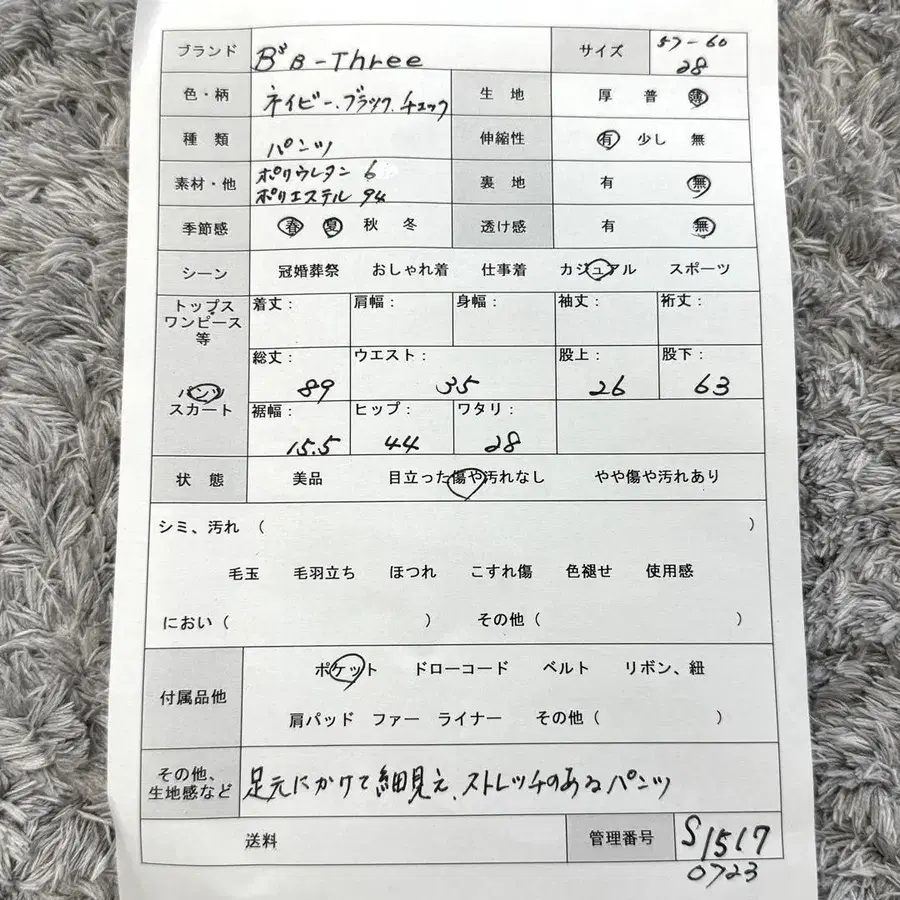 ブランド B³B-Three サイズ 57-60 28
色・柄 ネイビー、ブラック、チェック 生地 厚 普 薄
種類 パンツ 伸縮性 有 少し 無
素材・他 ポリウレタン 6 裏地 有 無
ポリエステル 94
季節感 春 夏 秋 冬 透け感 有 無
シーン 冠婚葬祭 おしゃれ着 仕事着 カジュアル スポーツ
トップス ワンピース 等 着丈: 肩幅: 身幅: 袖丈: 裄丈:
パンツ スカート 総丈: 89 ウエスト: 35 股上: 26 股下: 63
裾幅: 15.5 ヒップ: 44 ワタリ: 28
状態 美品 目立った傷や汚れなし やや傷や汚れあり
シミ、汚れ ( )
毛玉 毛羽立ち ほつれ こすれ傷 色褪せ 使用感
におい ( ) その他 ( )
付属品他 ポケット ドローコード ベルト リボン、紐
肩パッド ファー ライナー その他 ( )
その他、生地感など 足元にかけて細見え、ストレッチのあるパンツ
送料 管理番号 S1517
0723